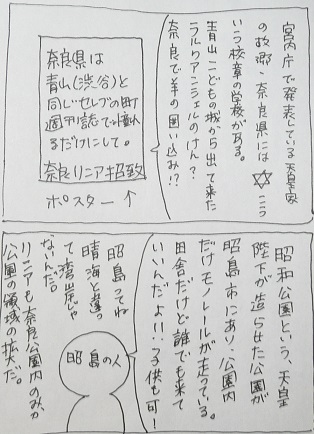 宮内庁で発表している天皇家
の故郷・奈良県には✡こう
いう校章の学校がある。
青山こどもの城から出て来た
ラルクアンシェルのけん?
奈良で羊の囲い込み!?
奈良県は
青山(渋谷)と
同じセレブの町
週刊誌で憧れ
るだけにして。
奈良リニア招致
ポスター↑
昭和公園という、天皇
陛下が造らせた公園が
昭島市にあり、公園内
だけモノレールが走っている。
田舎だけど誰でも来て
いいんだよ!!子供も可!
昭島の人
昭島ってね
晴海と違っ
て湾岸じゃ
ないんだ。
リニアも奈良公園内のみか
公園の領域の拡大だ。